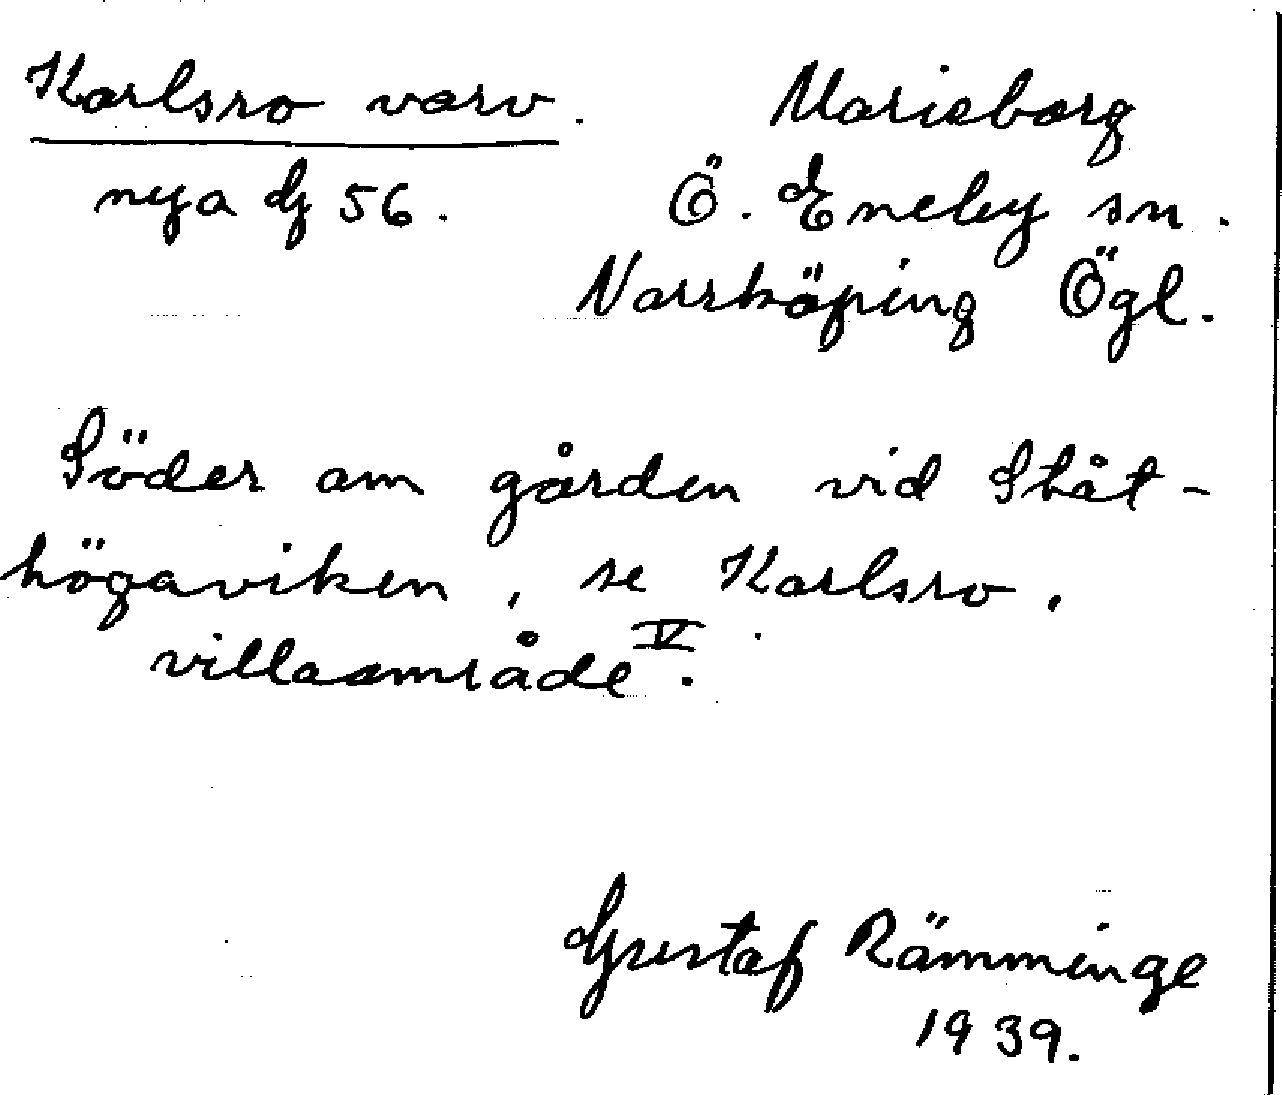 Karlsro varv. Marieborg
nya G 56. Ö. Eneby sn.
Norrköping Ögl.
Söder om gården vid Ståt-
högaviken, se Karlsro,
villaområde V.
Gustaf Rämminge
1939.